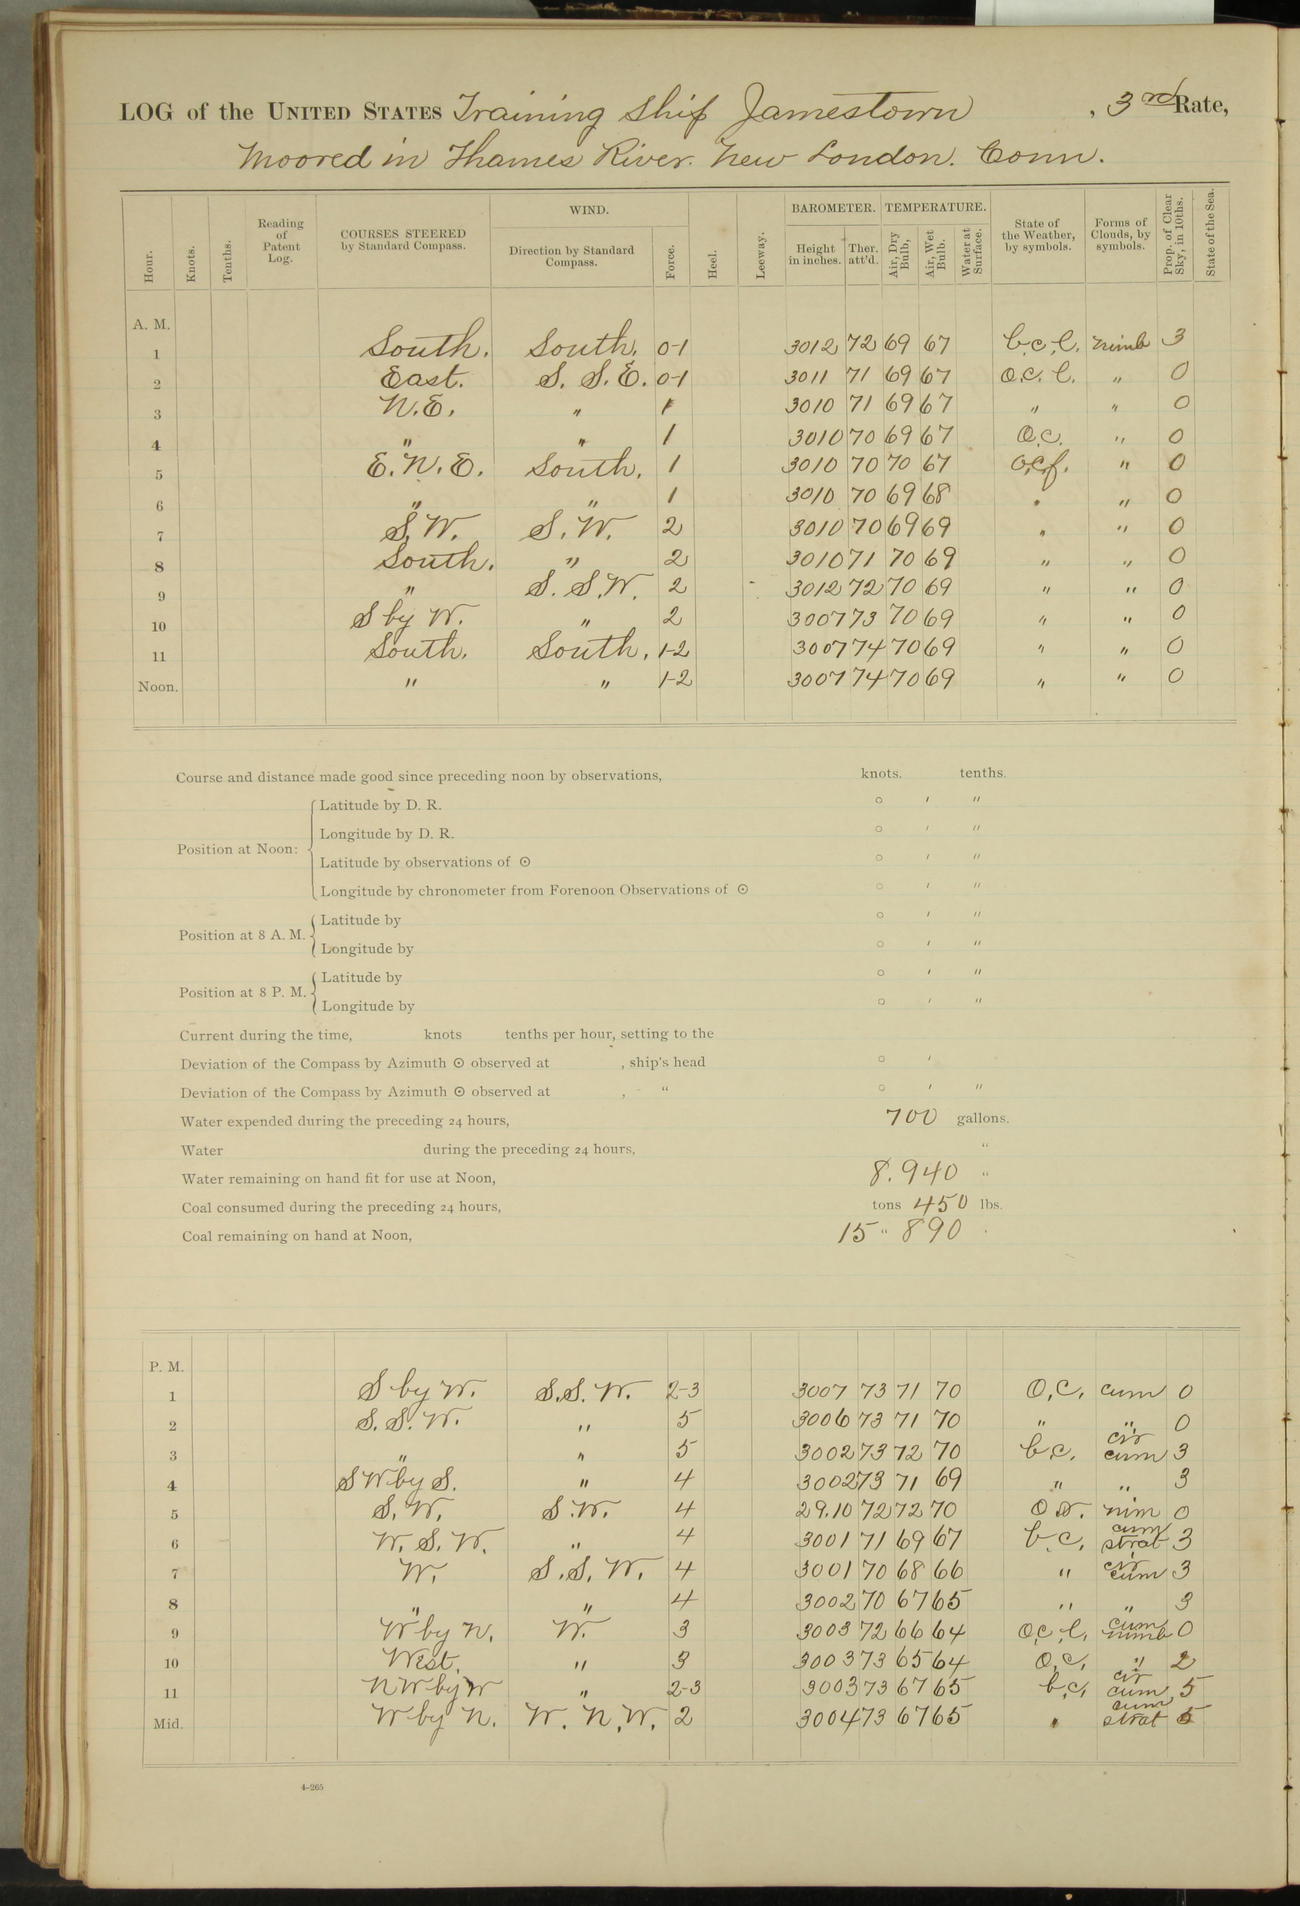 LOG of the UNITED STATES Training Ship Jamestown , 3rd Rate,
Moored in Thames River. New London. Conn.
Hour. Knots. Tenths. Reading of Patent Log. COURSES STEERED by Standard Compass. WIND. Direction by Standard Compass. Force. Heel. Leeway. BAROMETER. Height in inches. Ther. att'd. TEMPERATURE. Air, Dry Bulb, Air, Wet Bulb. Water at Surface. State of the Weather, by symbols. Forms of Clouds, by symbols. Prop. of Clear Sky, in 10ths. State of the Sea.
A. M.
1 South. South. 0-1 3012 72 69 67 b.c.l. nimb 3
2 East. S. S. E. 0-1 3011 71 69 67 o.c. l. " 0
3 N.E. " 1 3010 71 69 67 " " 0
4 " " 1 3010 70 69 67 O.C. " 0
5 E. N. E. South. 1 3010 70 70 67 o.c.f. " 0
6 " " 1 3010 70 69 68 " " 0
7 S. W. S. W. 2 3010 70 69 69 " " 0
8 South. " 2 3010 71 70 69 " " 0
9 " S. S. W. 2 3012 72 70 69 " " 0
10 S by W. " 2 3007 73 70 69 " " 0
11 South. South. 1-2 3007 74 70 69 " " 0
Noon. " " 1-2 3007 74 70 69 " " 0
Course and distance made good since preceding noon by observations, knots. tenths.
Position at Noon: Latitude by D. R. ° ′ ″
Longitude by D. R. ° ′ ″
Latitude by observations of ⊙ ° ′ ″
Longitude by chronometer from Forenoon Observations of ⊙ ° ′ ″
Position at 8 A. M. Latitude by ° ′ ″
Longitude by ° ′ ″
Position at 8 P. M. Latitude by ° ′ ″
Longitude by ° ′ ″
Current during the time, knots tenths per hour, setting to the
Deviation of the Compass by Azimuth ⊙ observed at , ship's head ° ′
Deviation of the Compass by Azimuth ⊙ observed at , “ ° ′ ″
Water expended during the preceding 24 hours, 700 gallons.
Water during the preceding 24 hours, “
Water remaining on hand fit for use at Noon, 8.940 “
Coal consumed during the preceding 24 hours, tons 450 lbs.
Coal remaining on hand at Noon, 15 “ 890
P. M.
1 S by W. S.S. W. 2-3 3007 73 71 70 O.C. cum 0
2 S. S. W. " 5 3006 73 71 70 " " 0
3 " " 5 3002 73 72 70 b.c. cir cum 3
4 SW by S. " 4 3002 73 71 69 " " 3
5 S. W. S. W. 4 29.10 72 72 70 nim 0
6 W. S. W. " 4 3001 71 69 67 b.c. cum strat 3
7 W. S. S. W. 4 3001 70 68 66 " cir cum 3
8 " " 4 3002 70 67 65 " " 3
9 W by N. W. 3 3003 72 66 64 O.C.l. cum nimb 0
10 West. " 3 3003 73 65 64 O.C. " 2
11 NW by W " 2-3 3003 73 67 65 b.c. cir cum 5
Mid. W by N. W. N. W. 2 3004 73 67 65 " cum strat 5
4-265